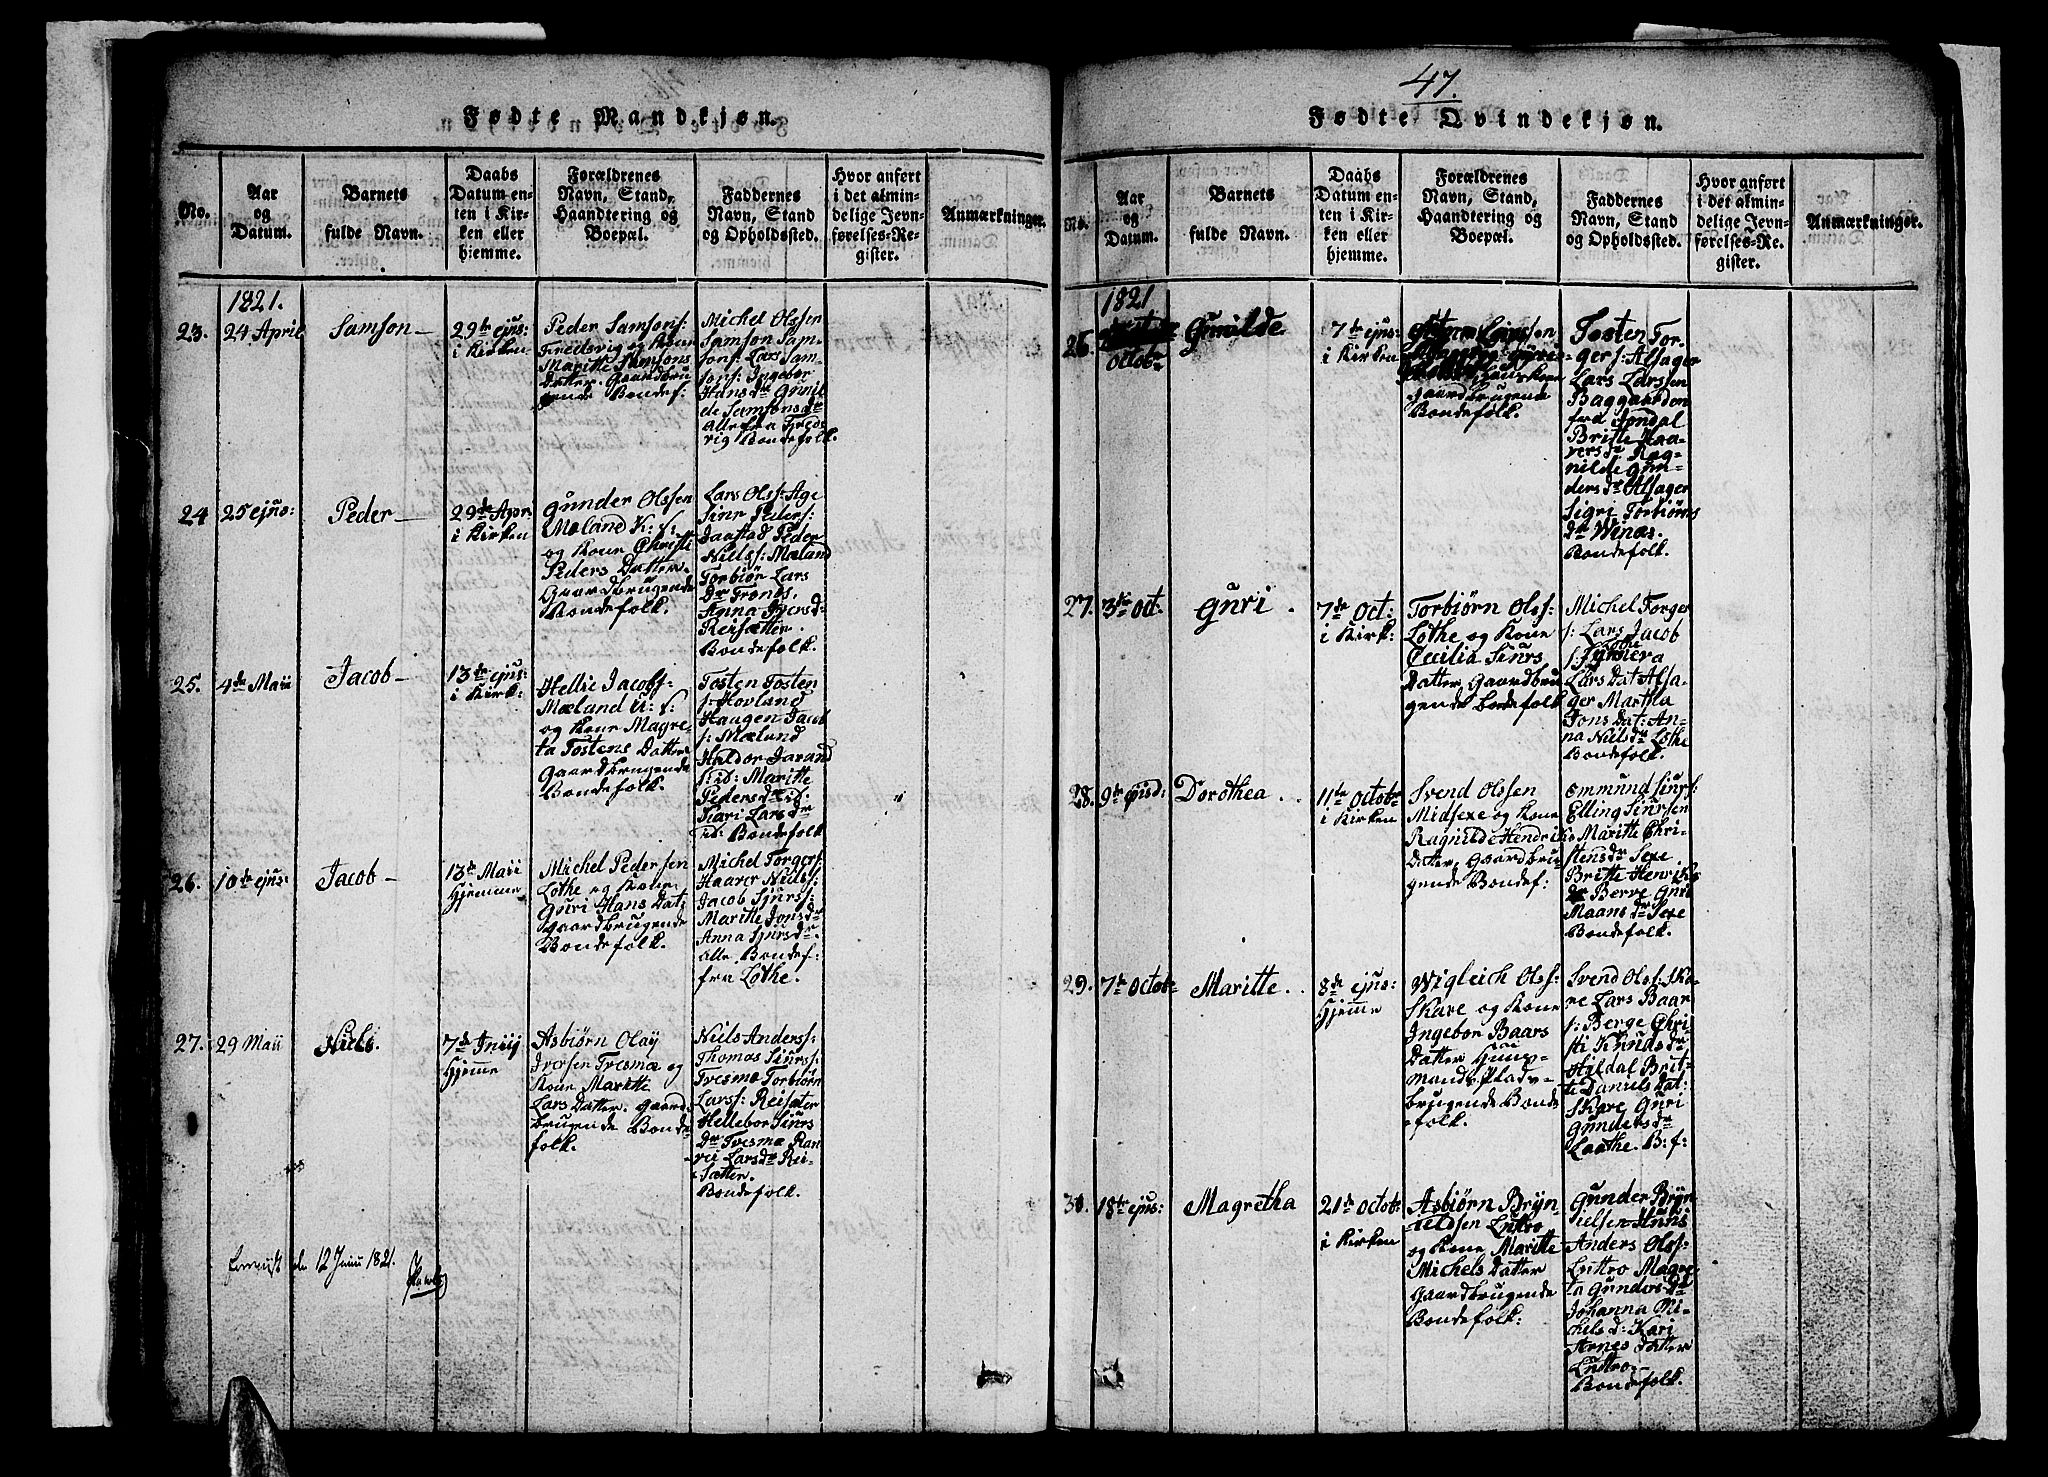 Fødte Mandkjøn.
No.
Aar
og
Datum.
Barnets
fulde Navn.
Daabs
Datum en-
ten i Kir-
ken eller
hjemme.
Forældrenes
Navn, Stand,
Haandtering og
Boepæl.
Faddernes
Navn, Stand
og Opholdssted.
Hvor anført
i det almin-
delige Jevn-
førelses-Re-
gister.
Anmærkninger.
1821.
23. 24 April
Samson
29de ejus:
i Kirken
Peder Samsons:
Tredsvig og Kone
Maritte Samsons
Datter. Gaardbru
gende Bondef:
Michel Olssen
Samson Sam-
sons: Lars Sam-
sons: Ingebor
Hans dr Gunil
de Samsonsdr
Alle fra Treds
vig Bondefolk.
24 25 ejus:
Peder
29de Apri
i Kirken
Gunder Olssen
Mæland K: f:
og Kone Christi
Peders Datter.
Gaardbrugende
Bondefolk.
Lars Olss: Age
Sinr Peders:
Jaastad Peder
Niels: Mæland
Torbiør Lars
Dr Trones.
Anna Ivers d:
Reisætter.
Bondefolk.
25. 4de Maii
Jacob
13de ejus:
i Kirk:
Helleie Jacobs:
Mæland K: f:
og Kone Magre-
ta Tostens Datter
Gaardbrugende
Bondefolk.
Tosten Tosten
s: Hovland
Haagen Jacob
s: Mælund
Haldor Jarand
s: id: Maritte
Pedersdr id:
Kari Larsdr
id: Bondefolk
26. 10de ejus:
Jacob
13de Maii
Hjemme
Michel Pedersen
Lothe og Kone
Guri Hans Dat:
Gaardbrugende
Bondefolk.
Michel Torgers:
Haarer Niels:
Jacob Sjurs:
Maritte Jonsdr
Anna Sjursdr.
Alle Bondef:
fra Lothe.
27. 29 Maii
Niels.
7de Junij
Hjeme
Asbiørn Olay
Iversen Tresmæ og
Kone Maritte
Lars Datter. Gaard-
brugende Bonde-
folk.
Niels Anderss:
Thomas Siurs:
Tresmæ Torbiørn
Larss: Reisæter
Hellebor Siurs
Dr Tresmæ Ran
vei Larsdr Rei-
Sætter.
Bondefolk.
12 Junii 1821.
47.
Fødte Qvindekjøn.
No.
Aar
og
Datum.
Barnets
fulde Navn.
Daabs
Datum en-
ten i Kir-
ken eller
hjemme.
Forældrenes
Navn, Stand,
Haandtering og
Boepæl.
Faddernes
Navn, Stand
og Opholdssted.
Hvor anført
i det almin-
delige Jevn-
førelses-Re-
gister.
Anmærkninger.
1821
26.
Octobr
Gunilde
7de ejus:
i Kirken
Larssen
Kone
Gaardbrugende
Bondefolk.
Tosten Tor-
gers: Alsager
Lars Larssen
Baggaarden
fra Jondal
Britte Haa-
versdr Rag-
nilde Gun-
ders dr Alsager
Sigri Torbiørns
dr Winæs.
Bondefolk.
27. 3de Oct:
Guri
7de Oct:
i Kirk:
Torbiørn Olss:
Lothe og Kone
Cecilia Siurs
Datter Gaardbru
gende Bodefolk
Michel Torger
s: Lars Jacob
s: Lothe
Lars Dat: Alsa-
ger Martha
Jons Dat: An-
na Nielsdr Lothe
Bondefolk.
28. 9de ejusd:
Dorothea
11te Octobr
i Kirken
Svend Olssen
Midsexe og Kone
Ragnilde Hendriks
Datter, Gaardbru-
gende Bondef:
Ommund Siurs:
Elling Siursen
Maritte Chri-
stensdr Sexe
Britte Henriks
dr Berve Guri
Maans dr Sexe
Bondefolk.
29. 7de Octobr
Maritte
8de ejus:
Hjeme
Wigleich Olss:
Skare og Kone
Ingebor Baars
Datter Huus-
mands Plads-
brugende Bonde
folk.
Svend Olss: Ska
re Lars Baar
s: Berge Chri-
sti Knuds dr
Hildal Brit-
te Daniels Dat:
Skare Guri
Gundersdr
Laathe. B: f:
30. 18te ejus:
Magretha
21de Octobr
i Kirken
Asbiørn Bryn
ieldsen Luttro
og Kone Maritte
Michels Datter
Gaardbrugende
Bondefolk:
Gunder Bryn
ielsen Huus
Anders Olss:
Luttro Magre
ta Gunders Dr
Johanna Mi-
chels d: Kari
Arnes Datter
Luttro
Bondefolk.